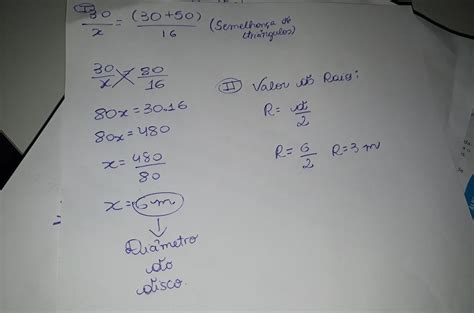 I
30/x = (30+50)/16 (Semelhança de triângulos)
30/x = 80/16
80x = 30.16
80x = 480
x = 480/80
x = 6m
Diâmetro
do
disco.
II Valor do Raio:
R = d/2
R = 6/2 R = 3m